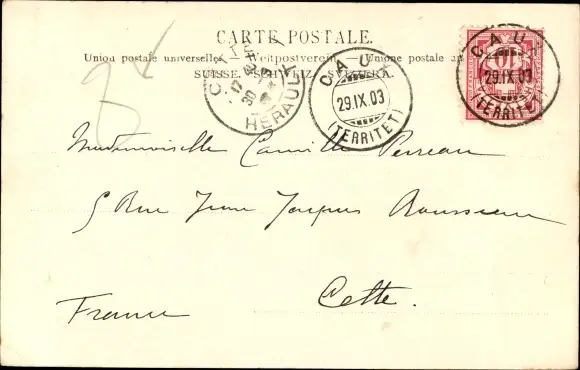 CARTE POSTALE.
Union postale universelle. — Weltpostverein — Unione postale
SUISSE. SCHWEIZ. SVIZZERA.
CAUX
29.IX.03
(TERRITET)
CAUX
29.IX.03
(TERRITET)
HERAULT
Mademoiselle Camille Perreau
5 Rue Jean Jacques Rousseau
Cette.
France